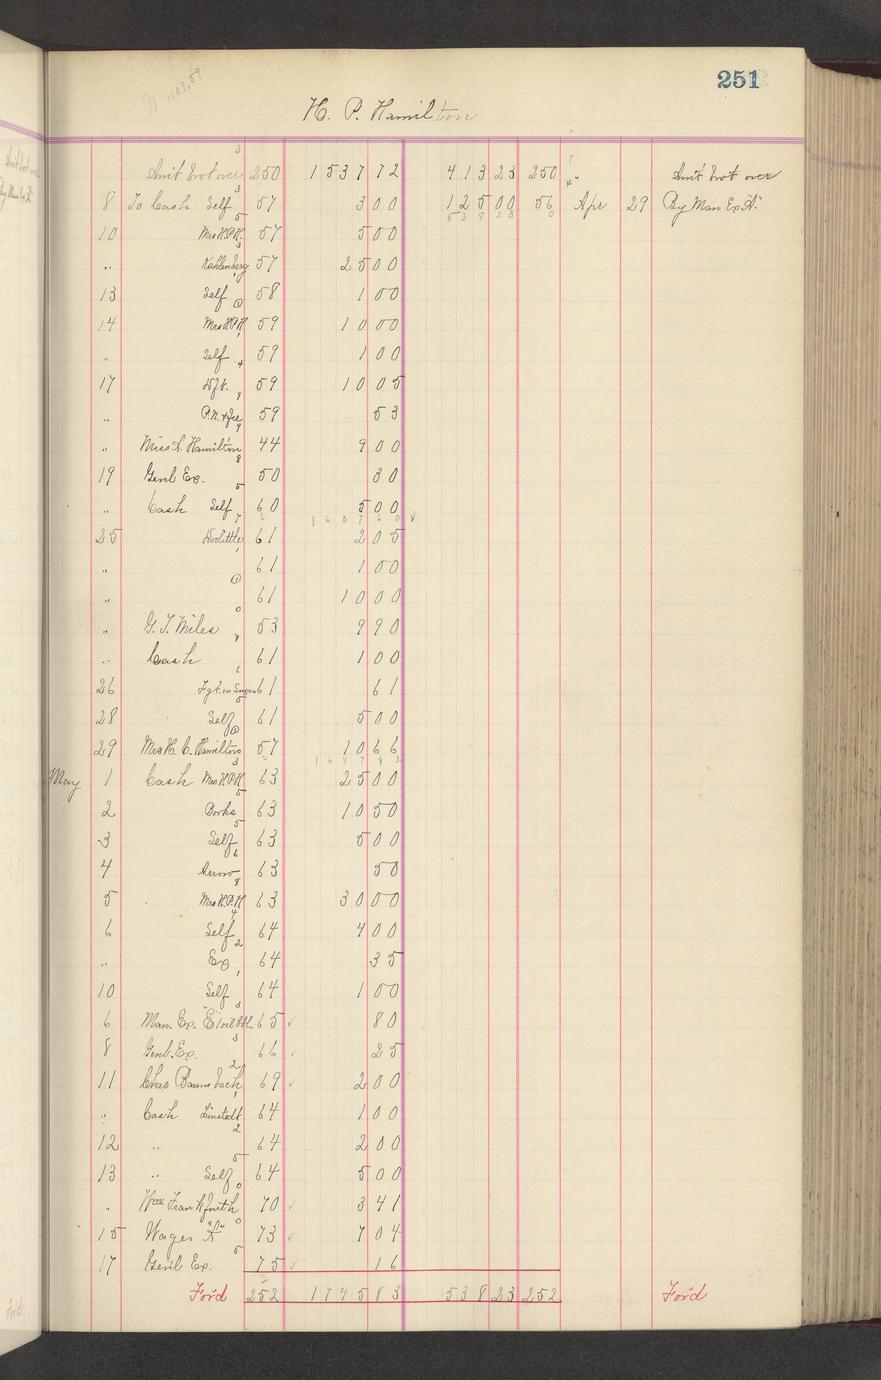 251
1107.59
H. P. Hamilton
Am't brot over 250 1537 72 413 23 250 Am't brot over
8 To Cash Self 57 3 00 125 00 56 Apr 29 By Man Ex "A"
538 23
10 Mrs H.P.H. 57 5 00
" Kahlenberg 57 25 00
13 Self 58 1 00
14 Mrs H.P.H 59 10 00
" Self 59 1 00
17 59 10 05
" 59 53
" Miss A. Hamilton 44 9 00
19 Genl Ex. 50 30
" Cash Self 60 5 00
1607 60 ✓
25 Doolittle 61 2 05
" 61 1 00
" 61 10 00
" G. J. Miles 53 9 90
" Cash 61 1 00
26 Fgt. on Sugar 61 61
28 Self 61 5 00
29 Mrs H. C. Hamilton 57 10 66
1647 82
May 1 Cash Mrs H.P.H 63 25 00
2 Books 63 10 50
3 Self 63 5 00
4 63 50
5 Mrs H.P.H 63 30 00
6 Self 64 4 00
" Ex 64 35
10 Self 64 1 00
6 Man. Ex. "E" 65 ✓ 80
8 Genl. Ex. 66 ✓ 25
11 Chas Baumbach 69 ✓ 2 00
" Cash Linstedt 64 1 00
12 " 64 2 00
13 " Self 64 5 00
" Wm Frankfurth 70 ✓ 3 41
15 Wages "A" 73 ✓ 7 04
17 Genl Ex. 75 ✓ 16
For'd 252 1745 83 538 23 252 For'd